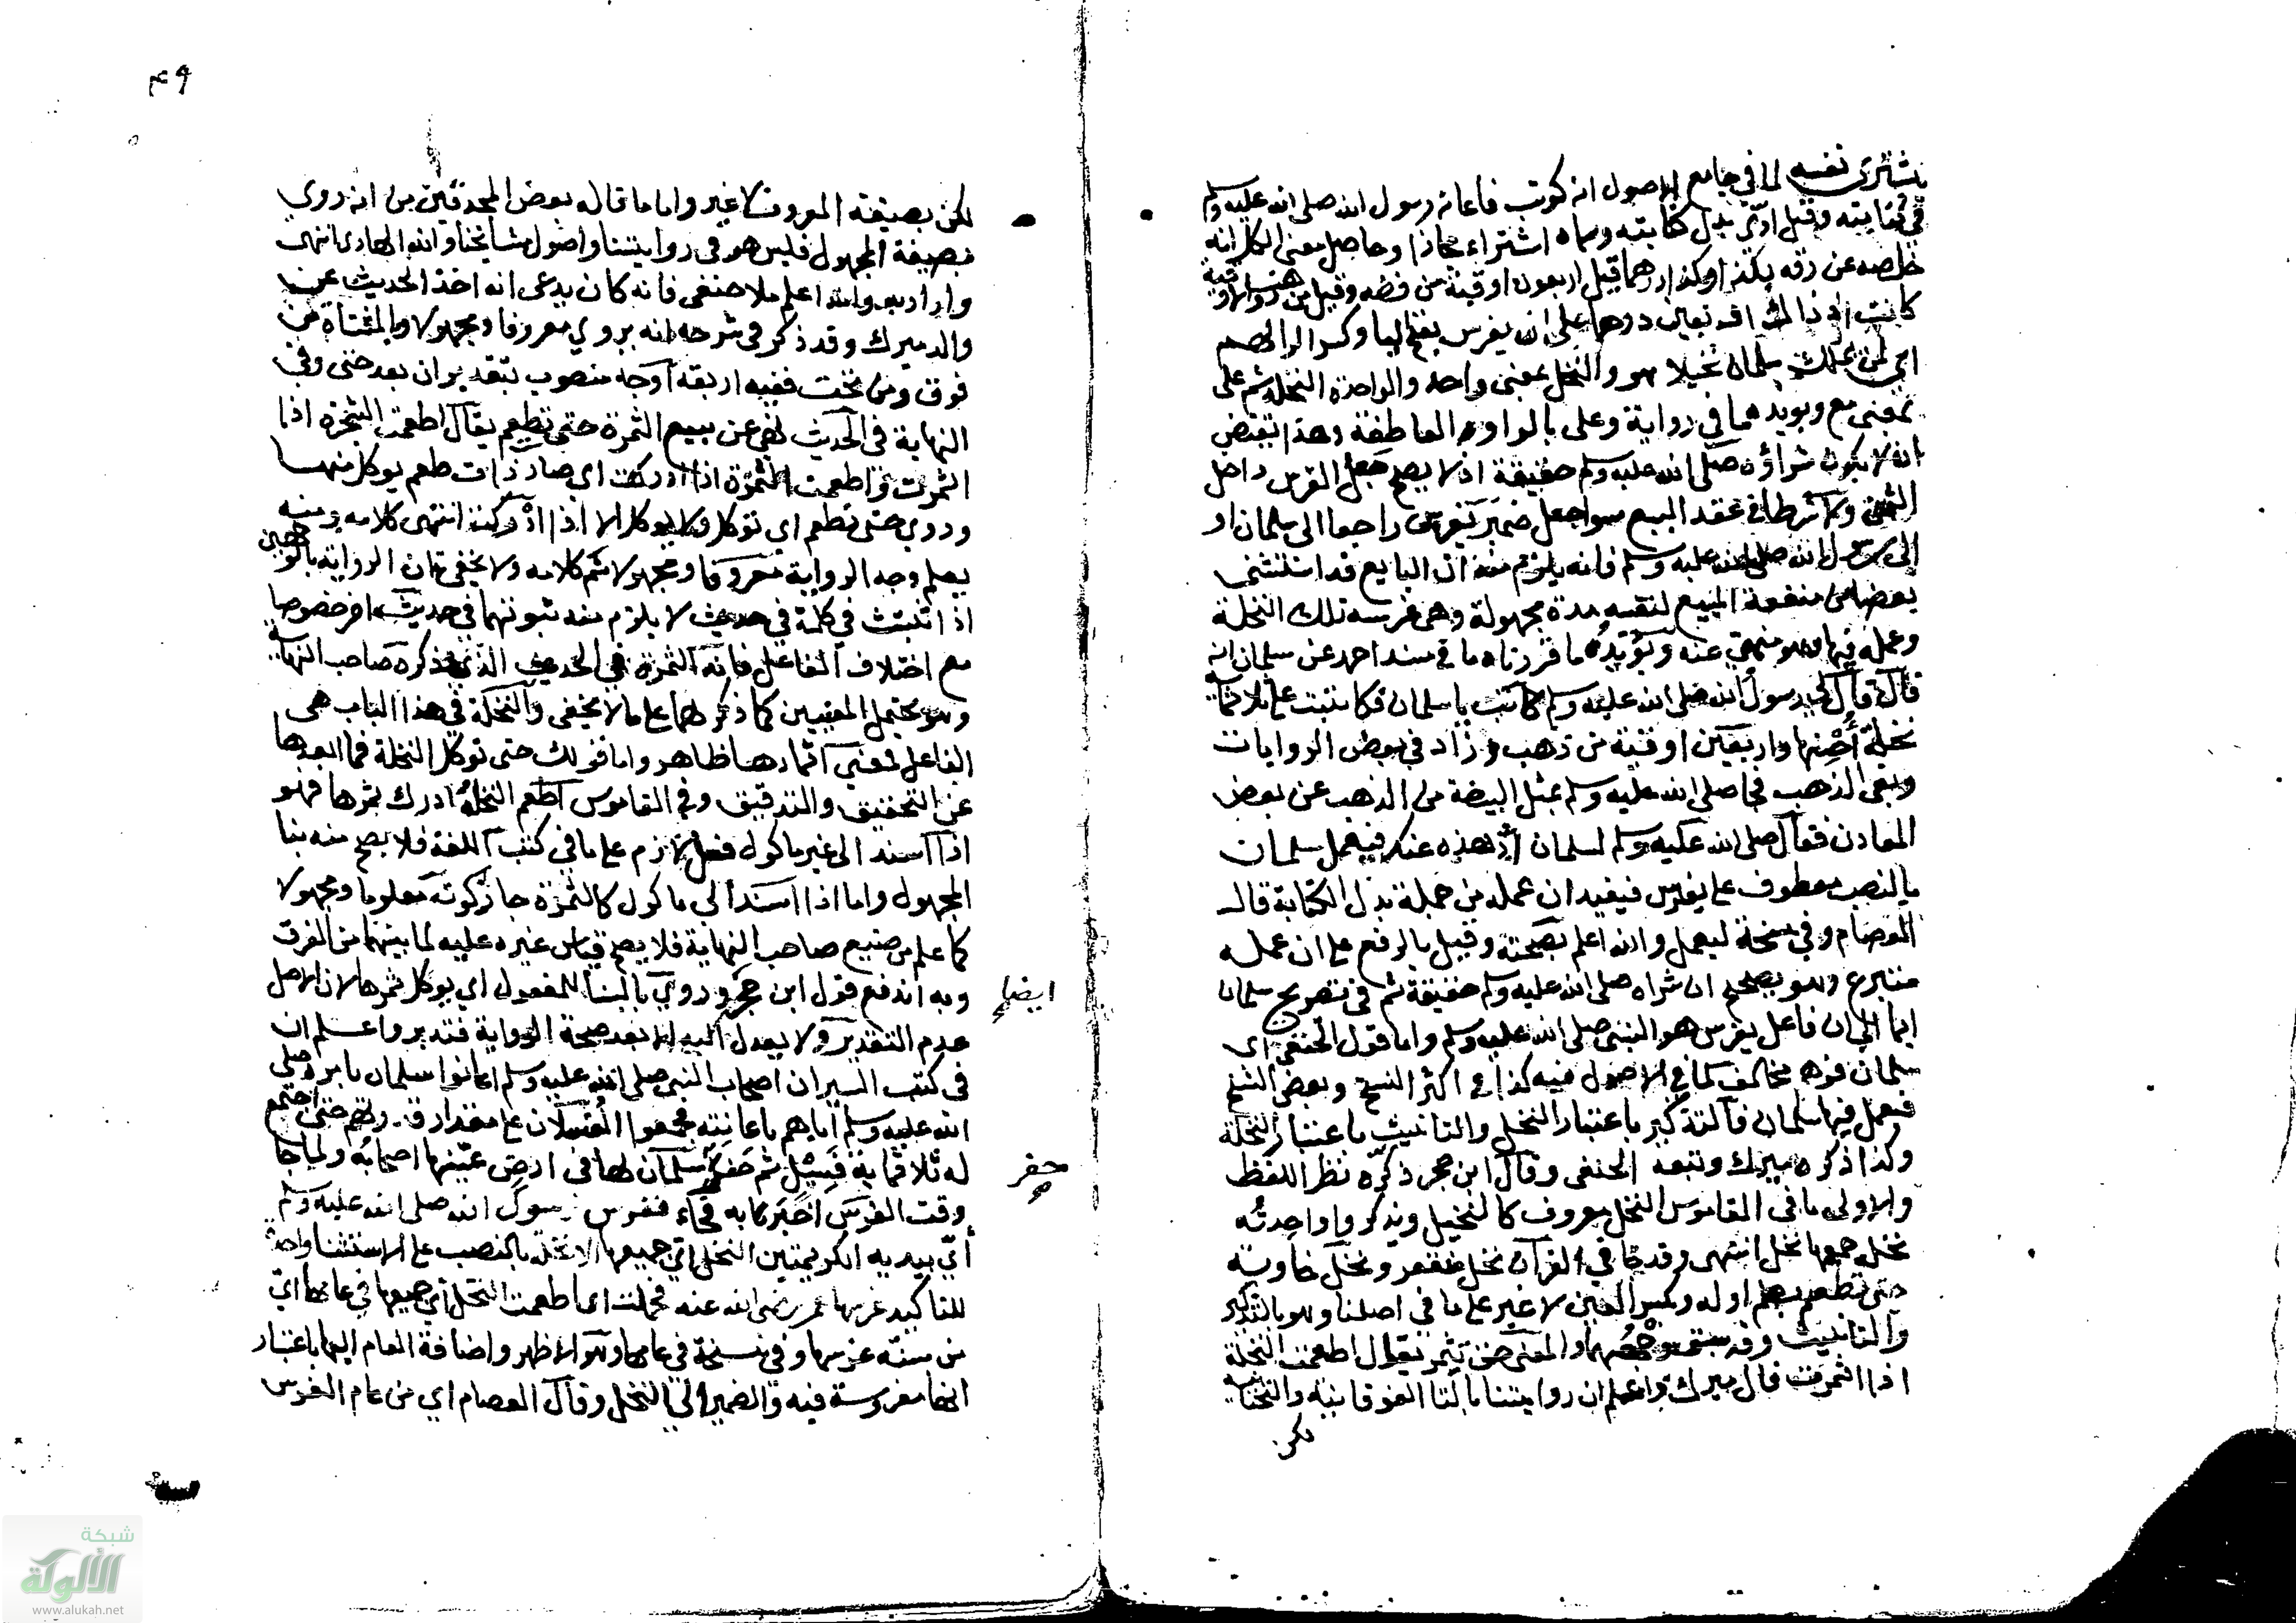 يشتري نفسه لما في جامع الاصول انه كوتب فاعانه رسول الله صلى الله عليه وسلم
في كتابته وقيل ادى بدل كتابته وسماه اشتراء مجازا وحاصل معنى الكل انه
خلصه عن رقه بكذا وكذا درهما قيل اربعون اوقية من فضة وقيل من ذهب والاوقية
كانت اذ ذاك اربعين درهما على ان يغرس بفتح اليا وكسر الرا
اي سلمان نخيلا هو والنخل بمعنى واحد والواحدة النخلة ثم على
بمعنى مع ويويده ما في رواية وعلى بالواو العاطفة وهذا يقتضي
انه لا يكون شراؤه صلى الله عليه وسلم حقيقة اذ لا يصح جعل الغرس داخل
الثمن ولا شرطا في عقد البيع سوا جعل ضمير يغرس راجعا الى سلمان او
الى رسول الله صلى الله عليه وسلم فانه يلزم منه ان البايع قد استثنى
بعضا من منفعة المبيع لنفسه مدة مجهولة وهي غرسه تلك النخلة
وعمله فيها وهو منهي عنه ويؤيده ما قررناه ما في مسند احمد عن سلمان انه
قال قال لي رسول الله صلى الله عليه وسلم كاتب يا سلمان فكاتبت على ثلاثماية
نخلة أحييها واربعين اوقية من ذهب وزاد في بعض الروايات
وبقي الذهب فجا صلى الله عليه وسلم بمثل البيضة من الذهب عن بعض
المعادن فقال صلى الله عليه وسلم لسلمان أدّ هذه عنك فيعمل سلمان
بالنصب معطوف على يغرس فيفيد ان عمله من جملة بدل الكتابة قال
العصام وفي نسخة ليعمل والله اعلم بصحته وقيل بالرفع على ان عمله
متبرع وهو يصحح ان شراه صلى الله عليه وسلم حقيقة ثم في تصريح سلمان
ايما الى ان فاعل يغرس هو النبي صلى الله عليه وسلم واما قول الحنفي اي
سلمان فهو مخالف لما في الاصول فيه كذا في اكثر النسخ وبعض النسخ
فيعمل فيها سلمان فالتذكير باعتبار النخل والتانيث باعتبار النخلة
وكذا ذكره ميرك وتبعه الحنفي وقال ابن حجر ذكّره نظرا للفظ
والاولى ما في القاموس النخل معروف كالنخيل ويذكر وواحدته
نخلة جمعها نخل انتهى وقد جا في القرآن نخل منقعر ونخل خاوية
حتى تطعم بضم اوله وكسر العين لا غير على ما في اصلنا وهو بالتذكير
والتانيث وقد سبق وجههما والمعنى حتى تثمر يقال اطعمت النخلة
اذا اثمرت قال ميرك واعلم ان روايتنا بالتا الفوقانية والتحتانية
لكن
٤٩
لكن بصيغة المعروف لا غير واما ما قاله بعض المحدثين من انه روي
بصيغة المجهول فليس هو في روايتنا واصول مشايخنا والله الهادي انتهى
واراد به والله اعلم ملا حنفي فانه كان يدعي انه اخذ الحديث عن
والد ميرك وقد ذكر في شرحه انه يروي معروفا ومجهولا وبالمثناة من
فوق ومن تحت ففيه اربعة اوجه منصوب بتقدير ان بعد حتى وفي
النهاية في الحديث نهى عن بيع الثمرة حتى تطعم يقال اطعمت الشجرة اذا
اثمرت واطعمت الثمرة اذا ادركت اي صار ذات طعم يوكل منها
وروي حتى تطعم اي توكل ولا يوكل الا اذا ادركت انتهى كلامه ومنه
يعلم وجه الرواية معروفا ومجهولا ثم كلامه ولا يخفى ان الرواية بالوجهين
اذا اثبتت في كلمة في حديث لا يلزم منه ثبوتهما في حديث اخر خصوصا
مع اختلاف الفاعل فانه الثمرة في الحديث الذي ذكره صاحب النهاية
وهو يحتمل المعنيين كما ذكرهما على ما لا يخفى والنخلة في هذا الباب هي
الفاعل فمعنى اثمارها ظاهر واما قولك حتى توكل النخلة فما ابعدها
عن التحقيق والتدقيق وفي القاموس اطعم النخلة ادرك ثمرها فهو
اذا اسند الى غير ماكول فعل لازم على ما في كتب اللغة فلا يصح منه بنا
المجهول واما اذا اسند الى ماكول كالثمرة جاز كونه معلوما ومجهولا
كما علم من صنيع صاحب النهاية فلا يصح قياس غيره عليه لما بينهما من الفرق
وبه اندفع قول ابن حجر وروي بالبنا للمفعول اي يوكل ثمرها لان الاصل
ايضا
عدم التقدير ولا يعدل اليه الا بعد صحة الرواية فتدبر واعلم ان
في كتب السير ان اصحاب النبي صلى الله عليه وسلم اعانوا سلمان بامره صلى
الله عليه وسلم اياهم باعانته فجمعوا الفسلان على مقدار قدرتهم حتى اجتمع
له ثلاثماية فسيل ثم حفر سلمان لها في ارض عينها اصحابه ولما جا
حفر
وقت الغرس اخبر كما به فجاء فغرس رسول الله صلى الله عليه وسلم
أي بيديه الكريمتين النخل اي جميعها الا نخلة بالنصب على الاستثنا واحدة
للتاكيد غرسها عمر رضي الله عنه فحملت اي اطعمت النخل اي جميعها في عامها اي
من سنة غرسها وفي نسخة في عامها وهو الاظهر واضافة العام اليها باعتبار
انها مغروسة فيه والضمير الى النخل وقال العصام اي من عام الغرس
شبكة
الألوكة
www.alukah.net